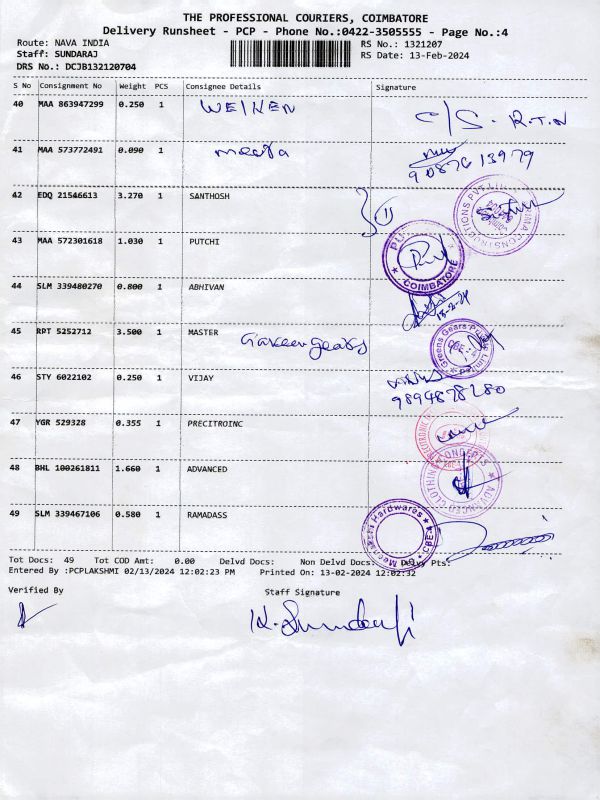 THE PROFESSIONAL COURIERS, COIMBATORE
Delivery Runsheet - PCP - Phone No.:0422-3505555 - Page No.:4
Route: NAVA INDIA
RS No.: 1321207
Staff: SUNDARAJ
RS Date: 13-Feb-2024
DRS No.: DCJB132120704
S No Consignment No Weight PCS Consignee Details Signature
40 MAA 863947299 0.250 1 WEIKEN
C/S. R.T.N
41 MAA 573772491 0.090 1 meeta
9087613979
42 EDQ 21546613 3.270 1 SANTHOSH
11
43 MAA 572301618 1.030 1 PUTCHI
COIMBATORE
44 SLM 339480270 0.800 1 ABHIVAN
13-2-24
45 RPT 5252712 3.500 1 MASTER
Greens Gears Private Limited
CBE
46 STY 6022102 0.250 1 VIJAY
9894878280
47 YGR 529328 0.355 1 PRECITROINC
48 BHL 100261811 1.660 1 ADVANCED
ADVANCED CLOTHING CONCEPTS
49 SLM 339467106 0.580 1 RAMADASS
Meenakshi Hardwares
CBE
Tot Docs: 49 Tot COD Amt: 0.00 Delvd Docs: Non Delvd Docs: Delvy Pts:
Entered By :PCPLAKSHMI 02/13/2024 12:02:23 PM Printed On: 13-02-2024 12:02:32
Verified By
Staff Signature
K. Sundaraj